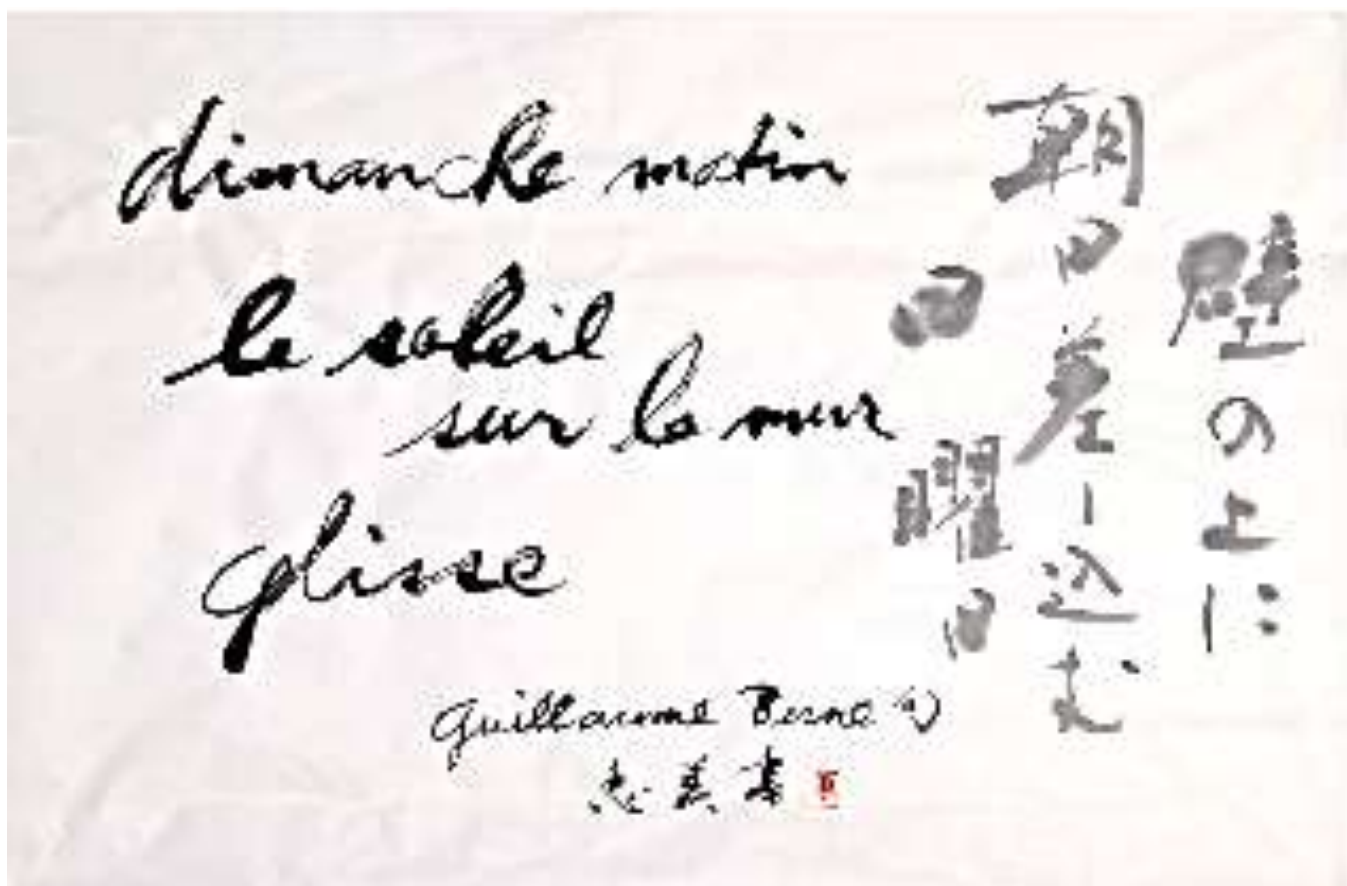 dimanche matin
le soleil
sur le mur
glisse
壁の上に
朝日差し込む
日曜日
Guillaume Berne 句
恵美書